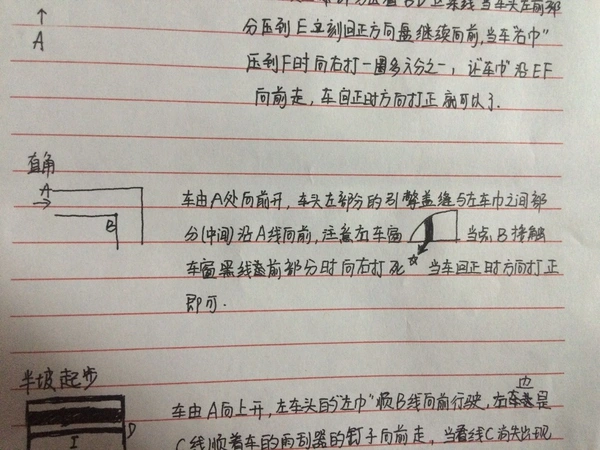 A
分压到E立刻回正方向盘继续向前,当车"右巾"
压到F时向右打一圈多六分之一,让"车巾"沿EF
向前走,车回正时方向打正就可以了.
直角
A
B
车由A处向前开,车头左部分的引擎盖缝与左车巾之间部
分(中间)沿A线向前,注意右车窗 当点B接触
车窗黑线前部分时向右打死 当车回正时方向打正
即可.
半坡起步
D
I
车由A向上开,左车头的"左巾"顺B线向前行驶,右边是
C线顺着车的雨刮器的钉子向前走,当看线C消失出现